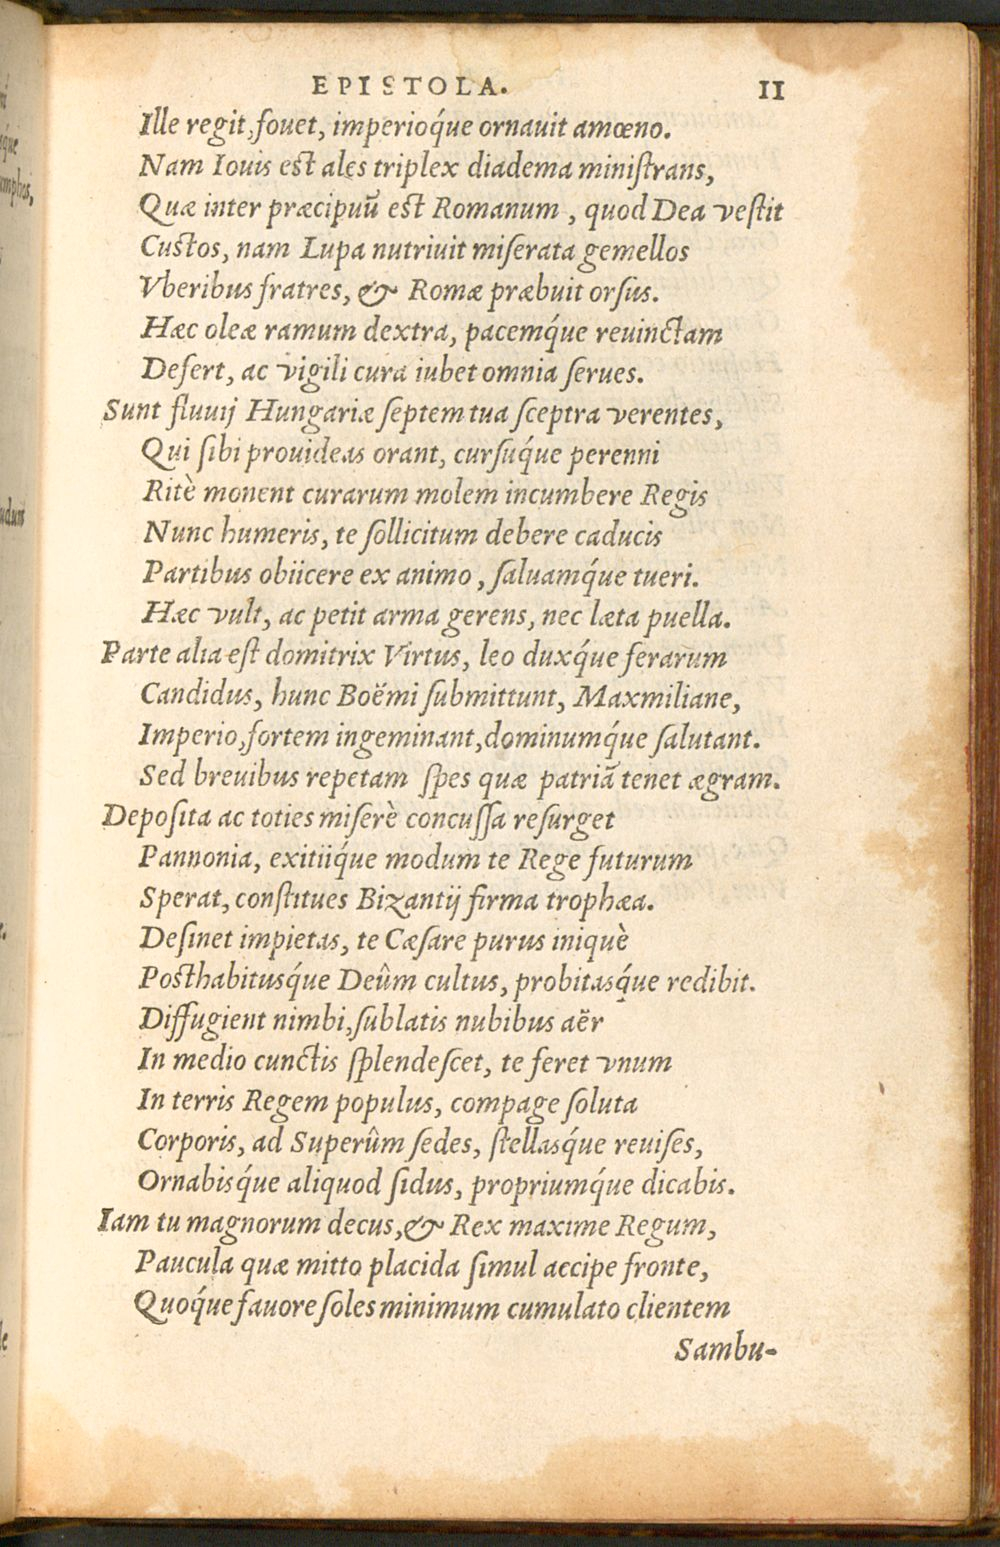 EPISTOLA. 11
Ille regit, fouet, imperioq́ue ornauit amœno.
Nam Iouis est ales triplex diadema ministrans,
Quæ inter præcipuũ est Romanum, quod Dea vestit
Custos, nam Lupa nutriuit miserata gemellos
Vberibus fratres, & Romæ præbuit orsus.
Hæc oleæ ramum dextra, pacemq́ue reuinctam
Defert, ac vigili cura iubet omnia serues.
Sunt fluuij Hungariæ septem tua sceptra verentes,
Qui sibi prouideas orant, cursuq́ue perenni
Ritè monent curarum molem incumbere Regis
Nunc humeris, te sollicitum debere caducis
Partibus obiicere ex animo, saluamq́ue tueri.
Hæc vult, ac petit arma gerens, nec læta puella.
Parte alia est domitrix Virtus, leo duxq́ue ferarum
Candidus, hunc Boëmi submittunt, Maxmiliane,
Imperio, fortem ingeminant, dominumq́ue salutant.
Sed breuibus repetam spes quæ patriã tenet ægram.
Deposita ac toties miserè concussa resurget
Pannonia, exitiiq́ue modum te Rege futurum
Sperat, constitues Bizantij firma trophæa.
Desinet impietas, te Cæsare purus iniquè
Posthabitusq́ue Deûm cultus, probitasq́ue redibit.
Diffugient nimbi, sublatis nubibus aër
In medio cunctis splendescet, te feret vnum
In terris Regem populus, compage soluta
Corporis, ad Superûm sedes, stellasq́ue reuises,
Ornabisq́ue aliquod sidus, propriumq́ue dicabis.
Iam tu magnorum decus, & Rex maxime Regum,
Paucula quæ mitto placida simul accipe fronte,
Quoq́ue fauore soles minimum cumulato clientem
Sambu-